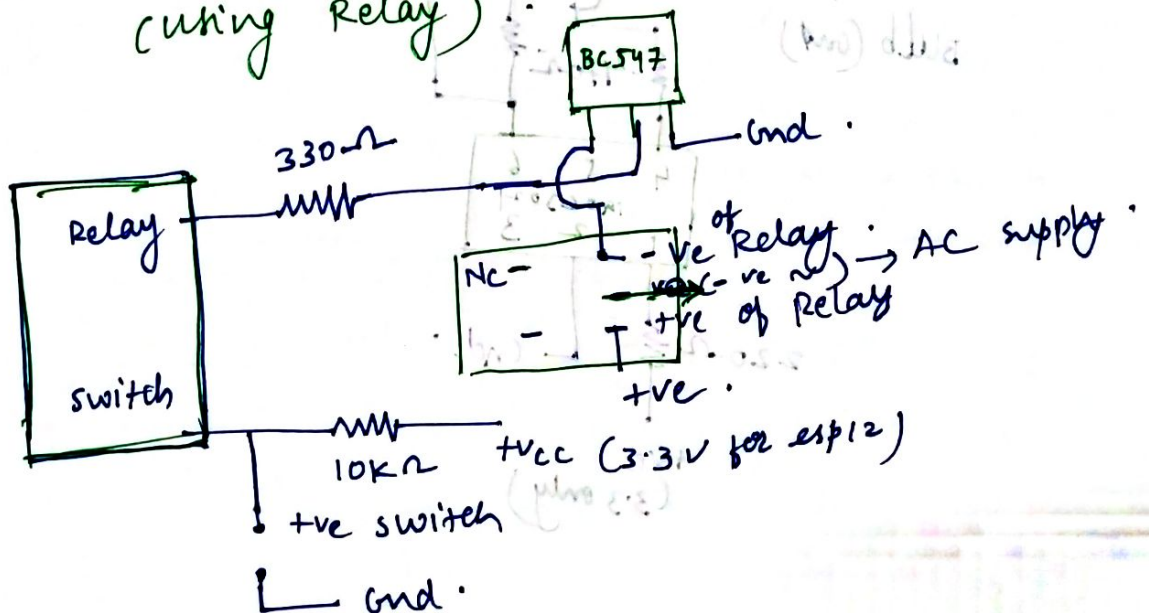 (using Relay)
BC547
Gnd .
330Ω
Relay
-ve of Relay .
→ AC supply .
NC
-ve
+ve of Relay
+ve .
switch
10KΩ
+Vcc (3.3V for esp12)
+ve switch
Gnd .